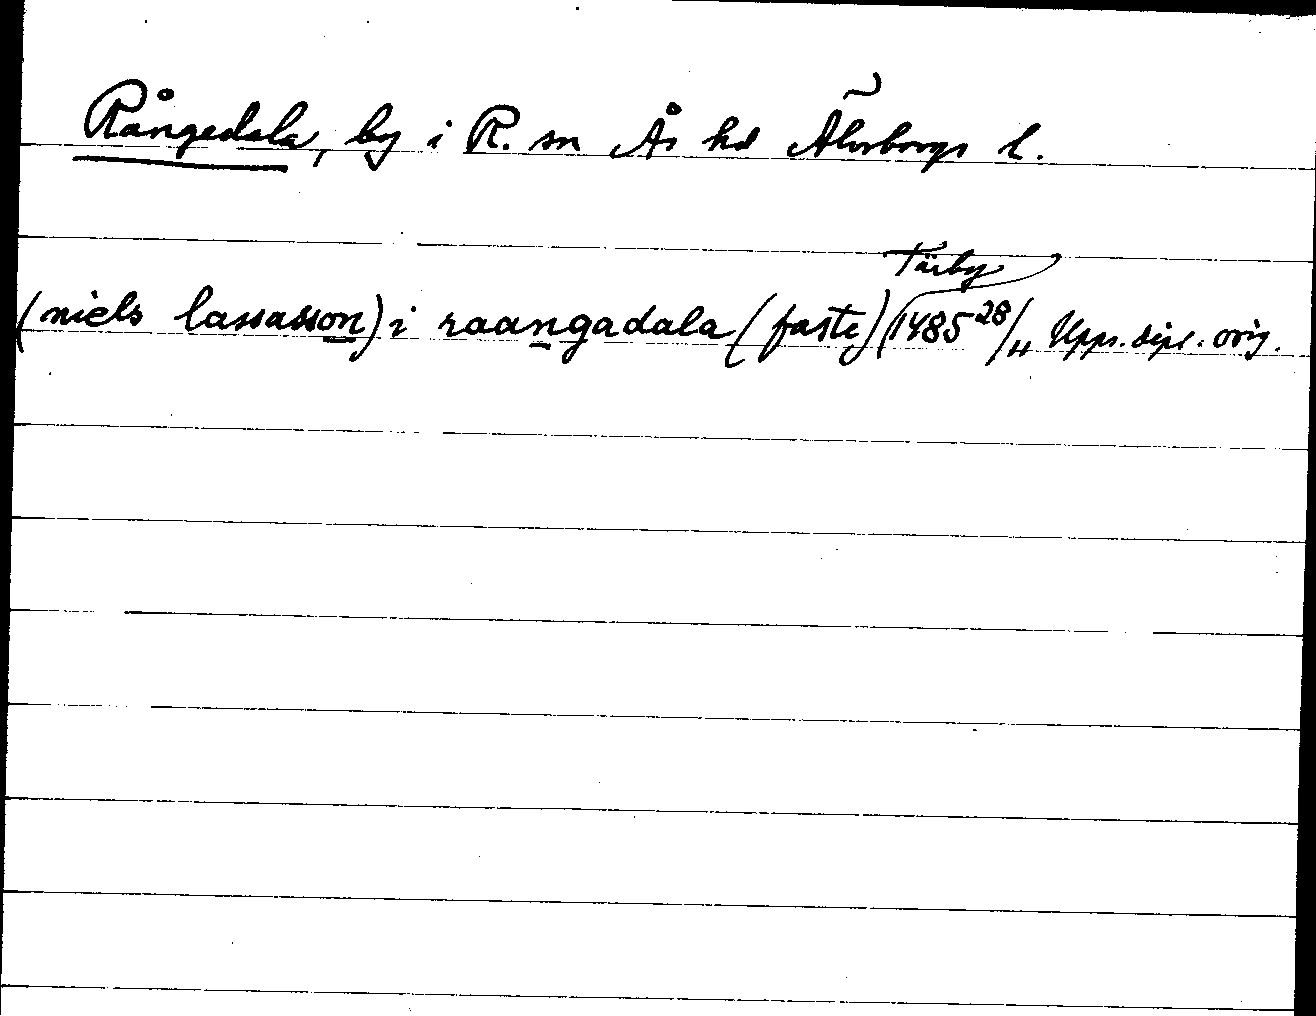 Rångedala, by i R. sn Ås hd Älvsborgs l.
Tärby
(niels lassasson) i raangadala (faste) 1485 28/11 Upps. dipl. orig.